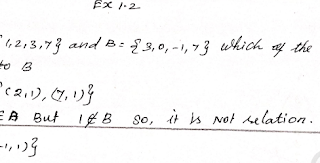 Ex 1.2
{1,2,3,7} and B = {3,0,-1,7} which of the
to B
{(2,1), (7,1)}
EA But 1∉B so, it is Not relation.
-1,1)}